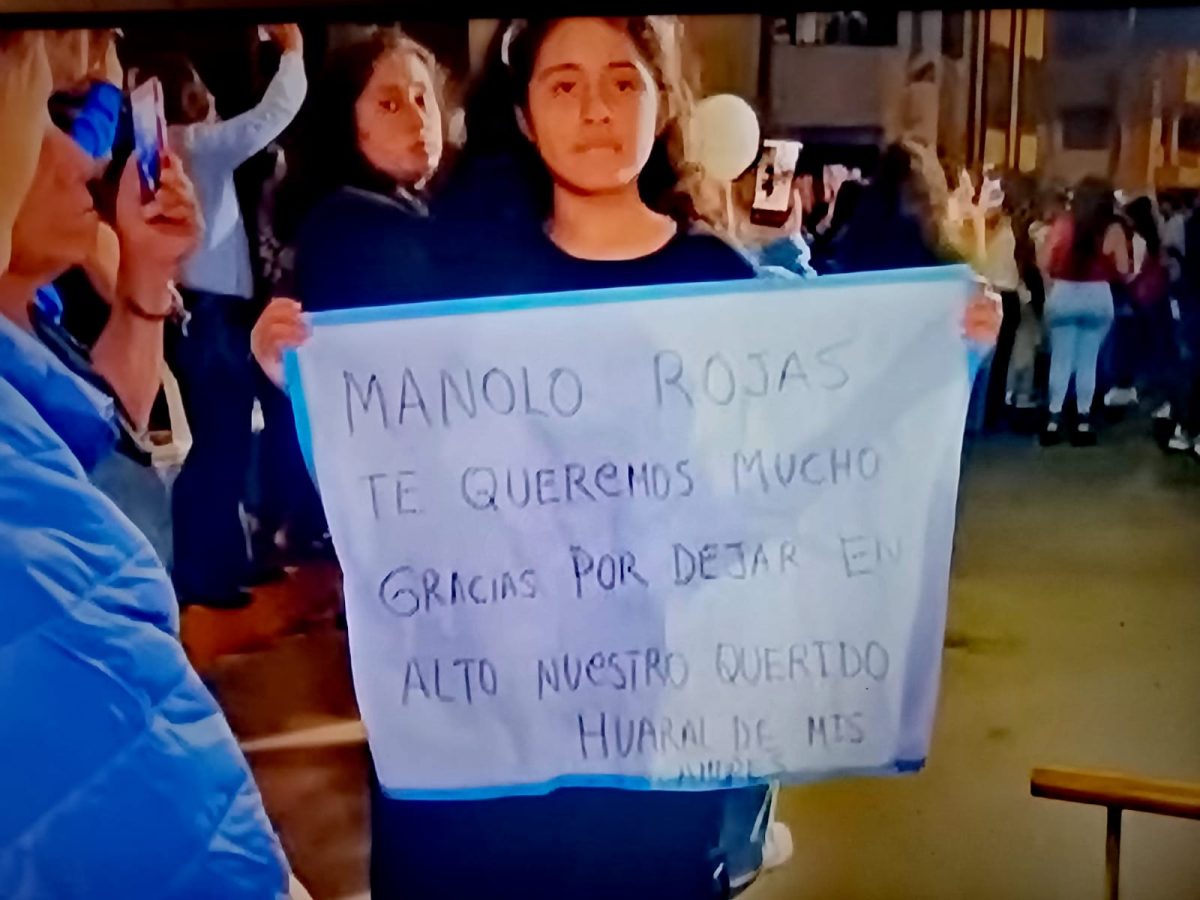 MANOLO ROJAS
TE QUEREMOS MUCHO
GRACIAS POR DEJAR EN
ALTO NUESTRO QUERIDO
HUARAL DE MIS